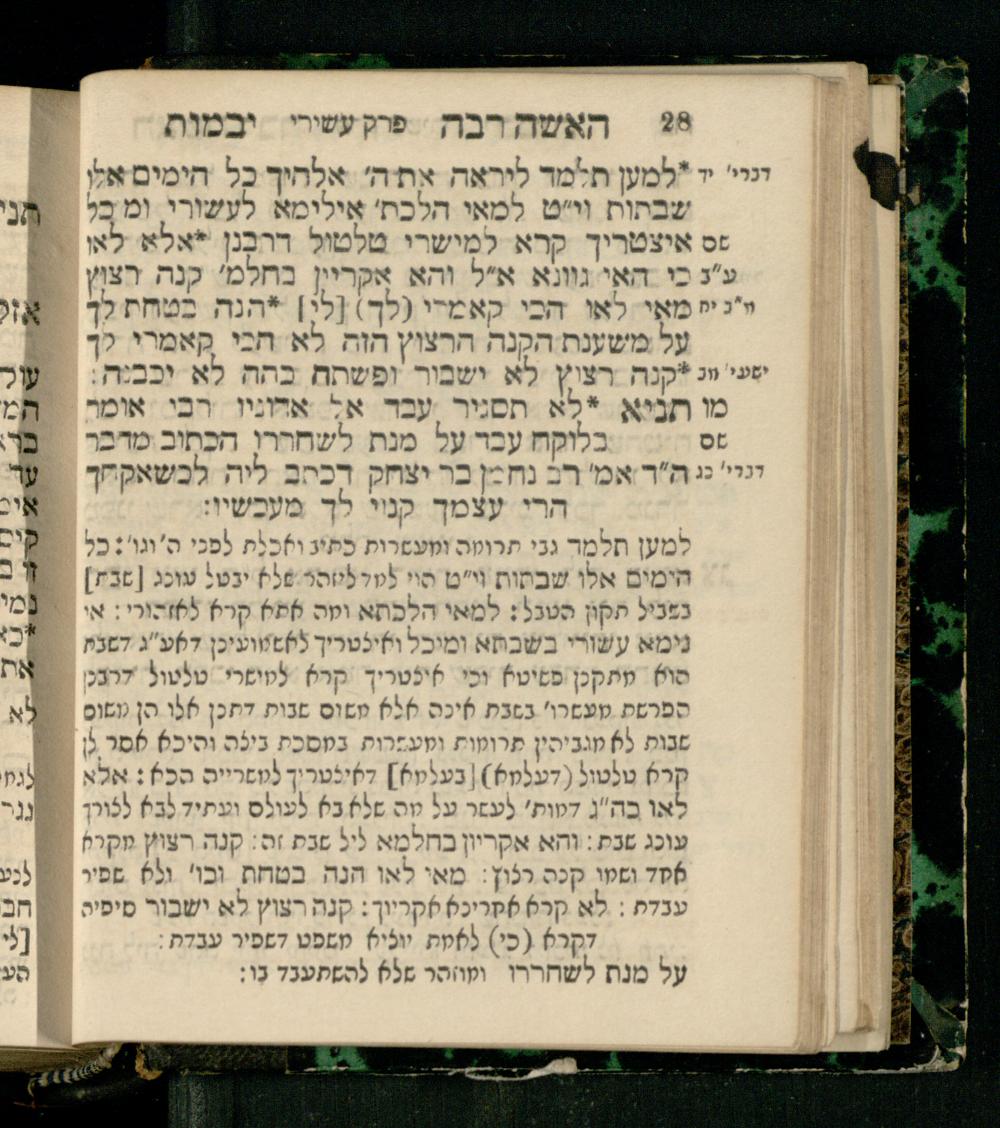 האשה רבה פרק עשירי יבמות 28
דברי' יד *למען תלמד ליראה את ה' אלהיך כל הימים אלו
שבתות וי"ט למאי הלכת' אילימא לעשורי ומ כל
שם איצטריך קרא למישרי טלטול דרבנן *אלא לאו
ע"ב כי האי גוונא א"ל והא אקריין בחלמ' קנה רצוץ
מ"ב יח מאי לאו הכי קאמרי (לך) [לי] *הנה בטחת לך
על משענת הקנה הרצוץ הזה לא הכי קאמרי לך
ישעי' מב *קנה רצוץ לא ישבור ופשתה כהה לא יכבנה:
מו תניא *לא תסגיר עבד אל אדוניו רבי אומר
שם בלוקח עבד על מנת לשחררו הכתוב מדבר
דברי' כג ה"ד אמ' רב נחמן בר יצחק דכתב ליה לכשאקחך
הרי עצמך קנוי לך מעכשיו:
למען תלמד גבי תרומה ומעשרות כתיב ואכלת לפני ה' וגו': כל
הימים אלו שבתות וי"ט הוי למד ליזהר שלא יבטל עונג [שבת]
בשביל תקון הטבל: למאי הלכתא ומה אתא קרא לאזהורי: אי
נימא עשורי בשבתא ומיכל ואיצטריך לאשמועינן דאע"ג דשבת
הוא מתקנן פשיטא וכי איצטריך קרא למישרי טלטול דרבנן
הפרשת מעשרו' בשבת איכה אלא משום שבות דתנן אלו הן משום
שבות לא מגביהין תרומות ומעשרות במסכת ביצה והיכא אסר לן
קרא טלטול (דעלמא) [בעלמא] דאיצטריך למשרייה הכא: אלא
לאו בה"ג דמות' לעשר על מה שלא בא לעולם ועתיד לבא לצורך
עונג שבת: והא אקריון בחלמא ליל שבת זה: קנה רצוץ מקרא
אחד ושמו קנה רצוץ: מאי לאו הנה בטחת וכו' ולא שפיר
עבדת: לא קרא אחרינא אקריוך: קנה רצוץ לא ישבור סיפיה
דקרא (כי) לאמת יוציא משפט דשפיר עבדת:
על מנת לשחררו ומוזהר שלא להשתעבד בו: